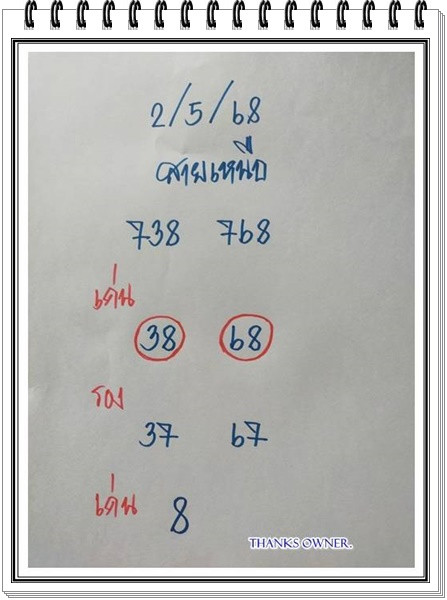 2/5/68
สายเหนือ
738 768
เด่น
38 68
รอง
37 67
เด่น 8
THANKS OWNER.